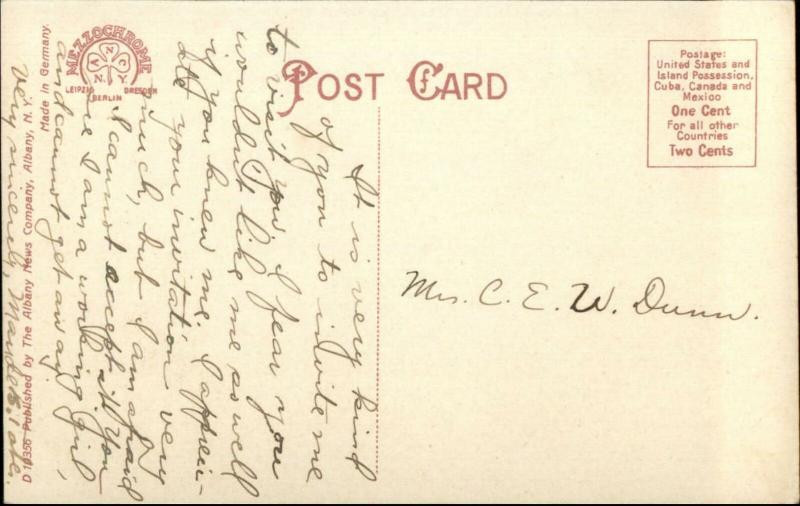 POST CARD
Postage:
United States and
Island Possession,
Cuba, Canada and
Mexico
One Cent
For all other
Countries
Two Cents
MEZZOCHROME
ANCY
LEIPZIG DRESDEN
BERLIN
Made in Germany.
D 10356 Published by The Albany News Company, Albany, N.Y.
It is very kind
of you to invite me
to visit you. I fear you
wouldn't like me as well
if you knew me. I appreci-
ate your invitation very
much, but I am afraid
I cannot accept it. You
see I am a working girl,
and cannot get away.
Very sincerely, Maude B.
Mrs. C. E. W. Dunn.